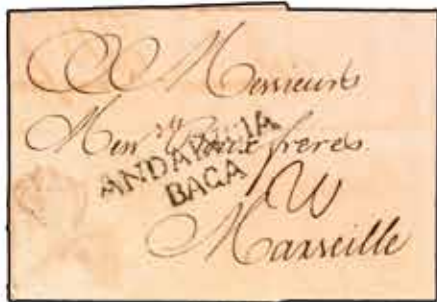 Messieurs
Roux freres
ANDALUCIA
BAGA
Marseille